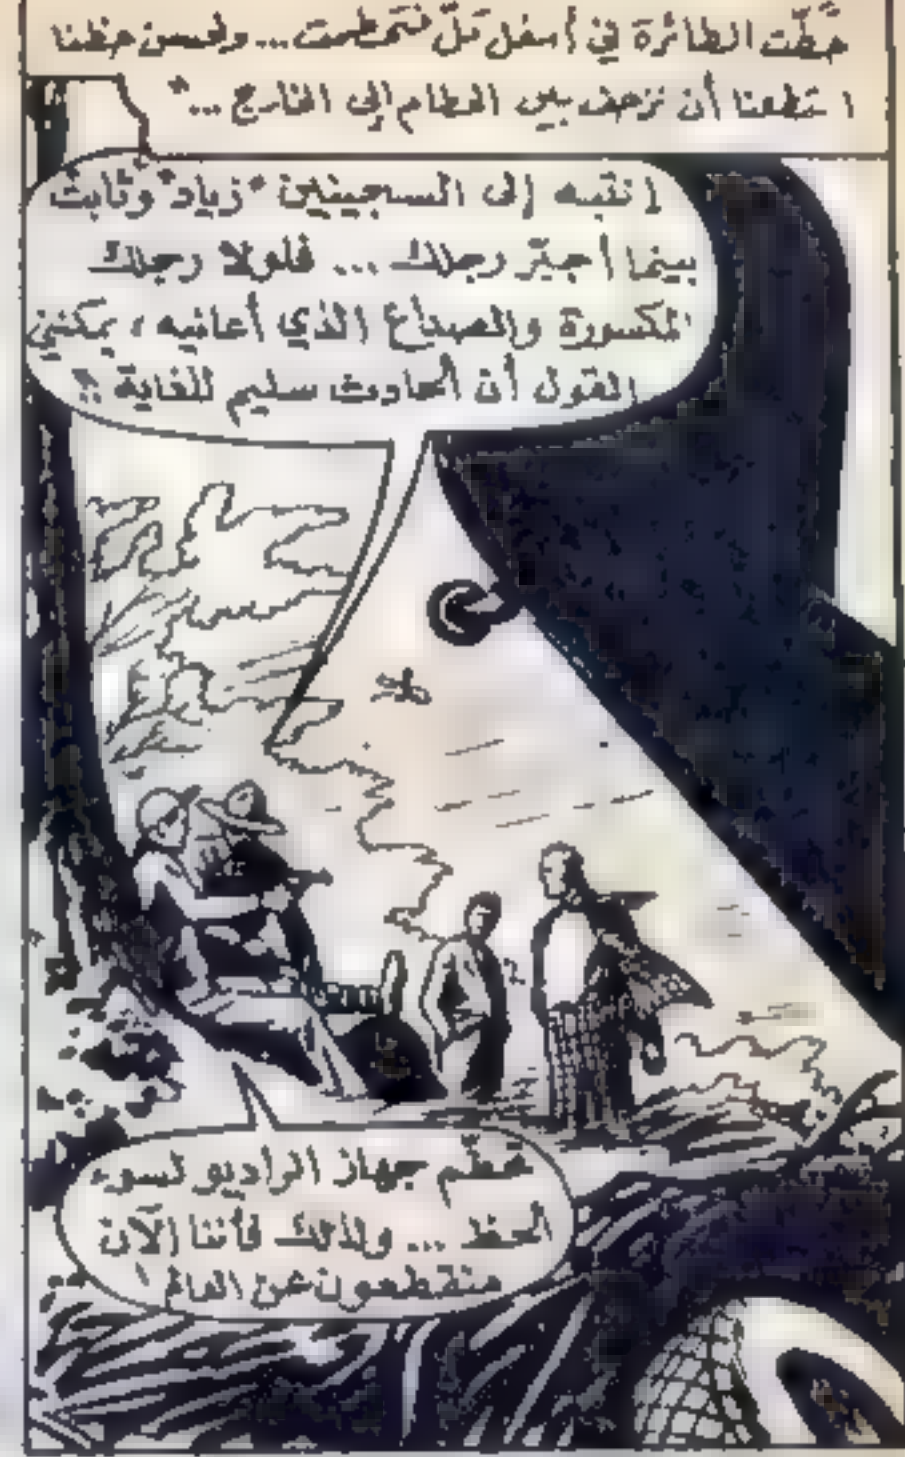 حطّت الطائرة في أسفل تلّ فتحطمت... ولحسن حظنا
استطعنا أن نزحف بين الحطام إلى الخارج ..."
انتبه إلى السجينين "زياد" وثابت
بينما أجبّر رجلك ... فلولا رجلك
المكسورة والصداع الذي أعانيه ، يمكنني
القول أن الحادث سليم للغاية !!
تحطّم جهاز الراديو لسوء
الحظ ... ولذلك فأننا الآن
منقطعون عن العالم !